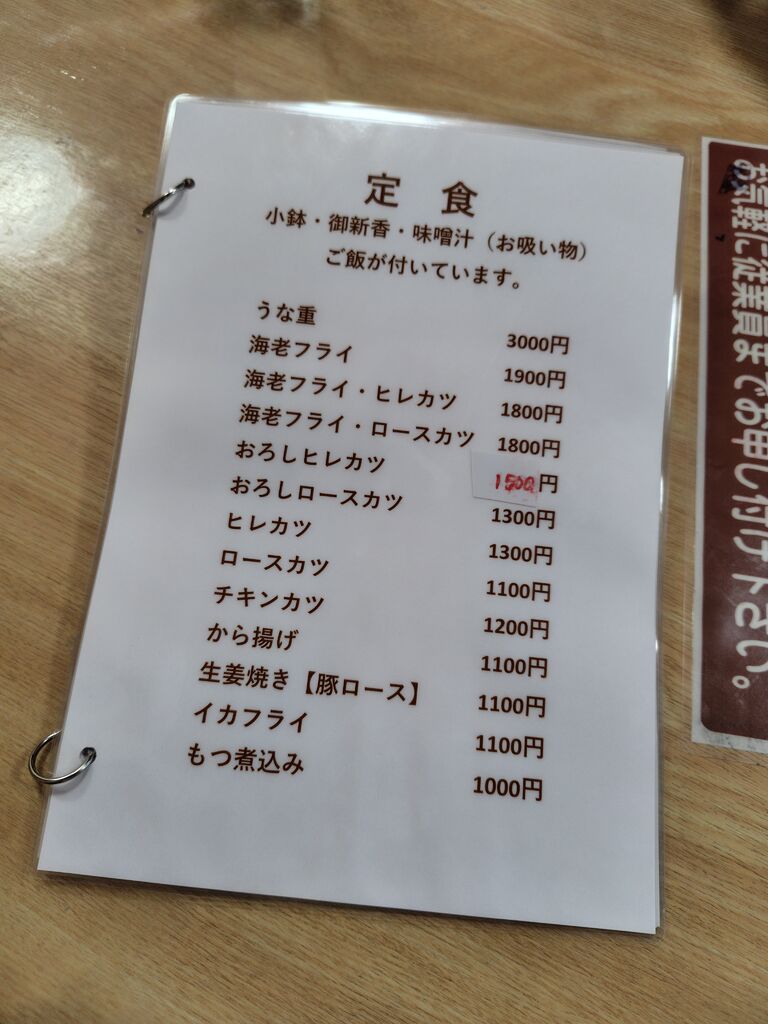 定 食
小鉢・御新香・味噌汁（お吸い物）
ご飯が付いています。
うな重 3000円
海老フライ 1900円
海老フライ・ヒレカツ 1800円
海老フライ・ロースカツ 1800円
おろしヒレカツ 1500円
おろしロースカツ 1300円
ヒレカツ 1300円
ロースカツ 1100円
チキンカツ 1200円
から揚げ 1100円
生姜焼き【豚ロース】 1100円
イカフライ 1100円
もつ煮込み 1000円
お気軽に従業員までお申し付け下さい。